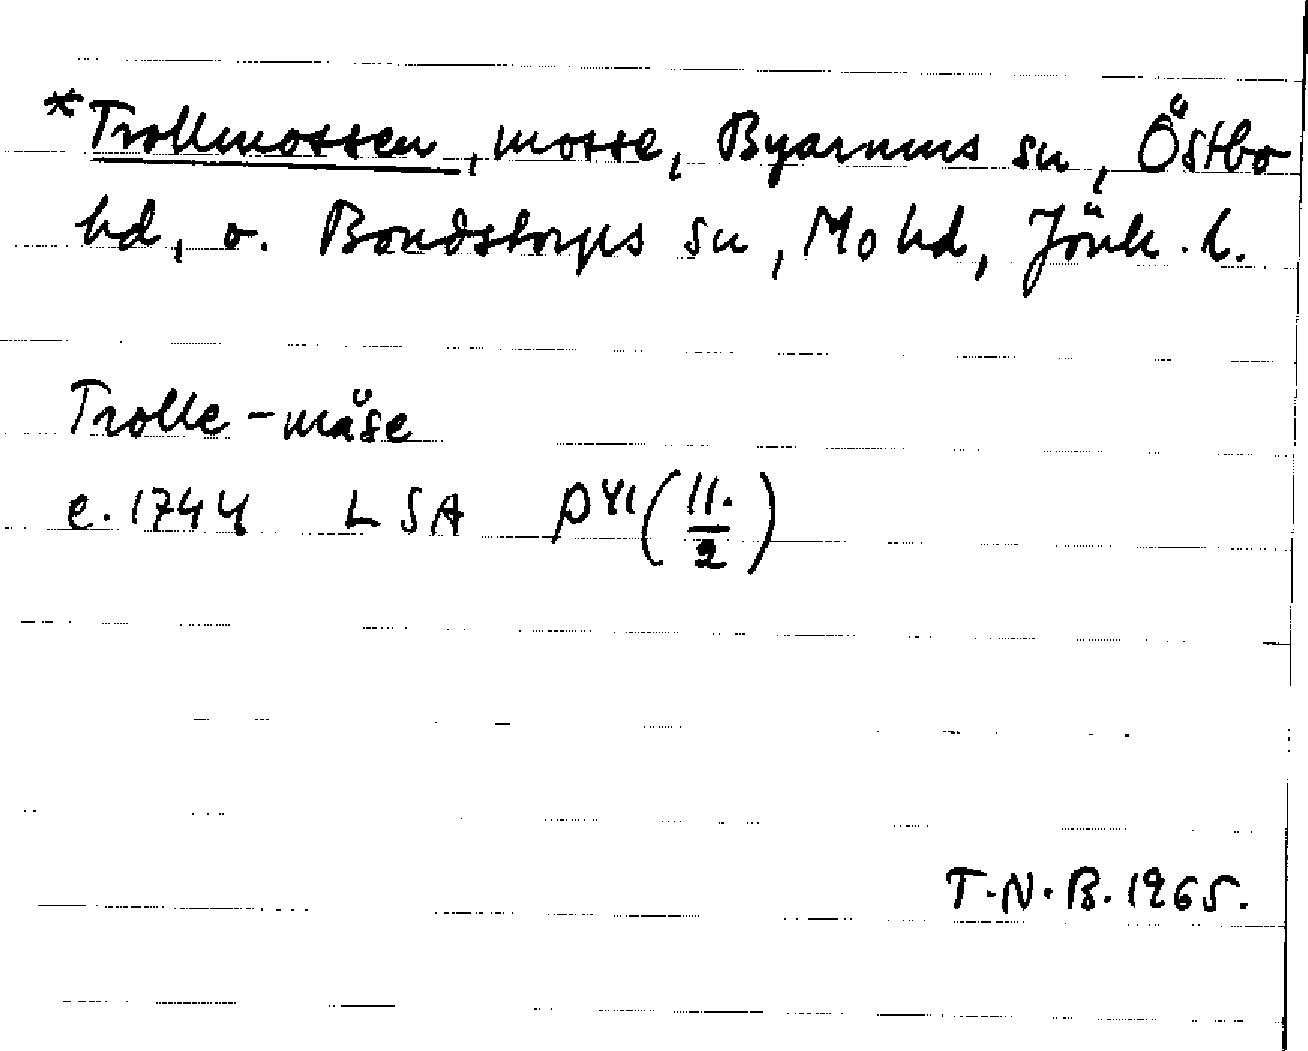 *Trollmossen, mosse, Byarums sn, Östbo
hd, o. Bondstorps sn, Mo hd, Jönk. l.
Trolle-måse
c. 1744 LSA P41 (11./2)
T.N.B. 1965.